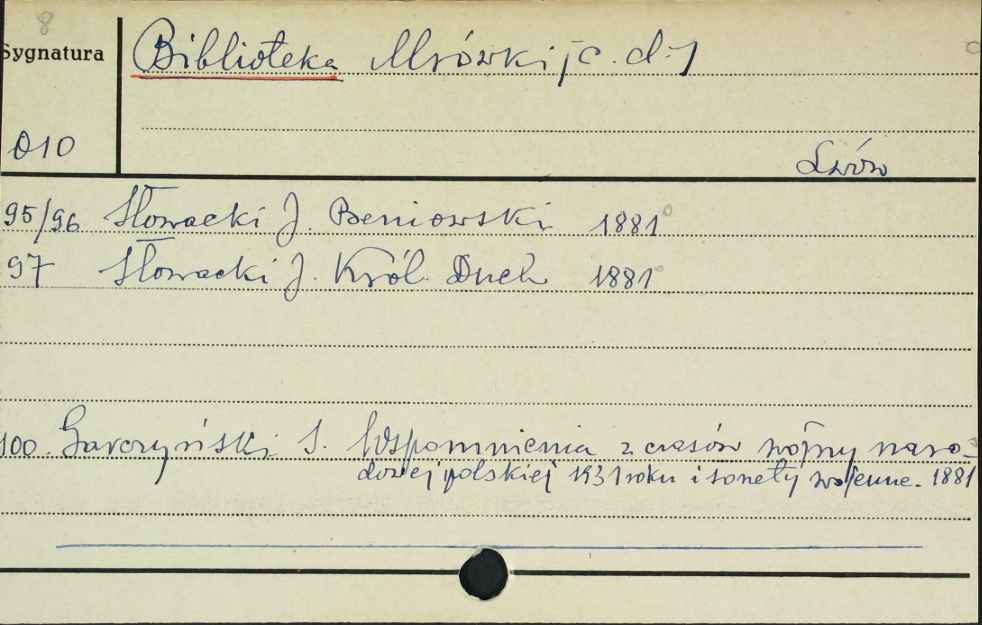 8
Sygnatura
Biblioteka Mrówki /c.d./
010
Lwów
95/96 Słowacki J. Beniowski 1881
97 Słowacki J. Król. Duch 1881
100. Garczyński S. Wspomnienia z czasów wojny naro-
dowej polskiej 1931 roku i sonety wojenne. 1881